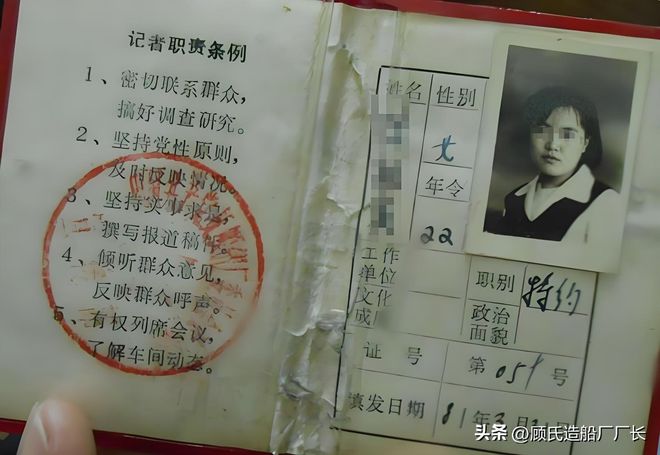 记者职责条例
1、密切联系群众,
搞好调查研究。
2、坚持党性原则,
及时反映情况。
3、坚持实事求是,
撰写报道稿件。
4、倾听群众意见,
反映群众呼声。
5、有权列席会议,
了解车间动态。
姓名
性别
女
年令
22
工作
单位
职别
特约
文化
政治
面貌
证号
第059号
填发日期
81年3月
头条@顾氏造船厂厂长